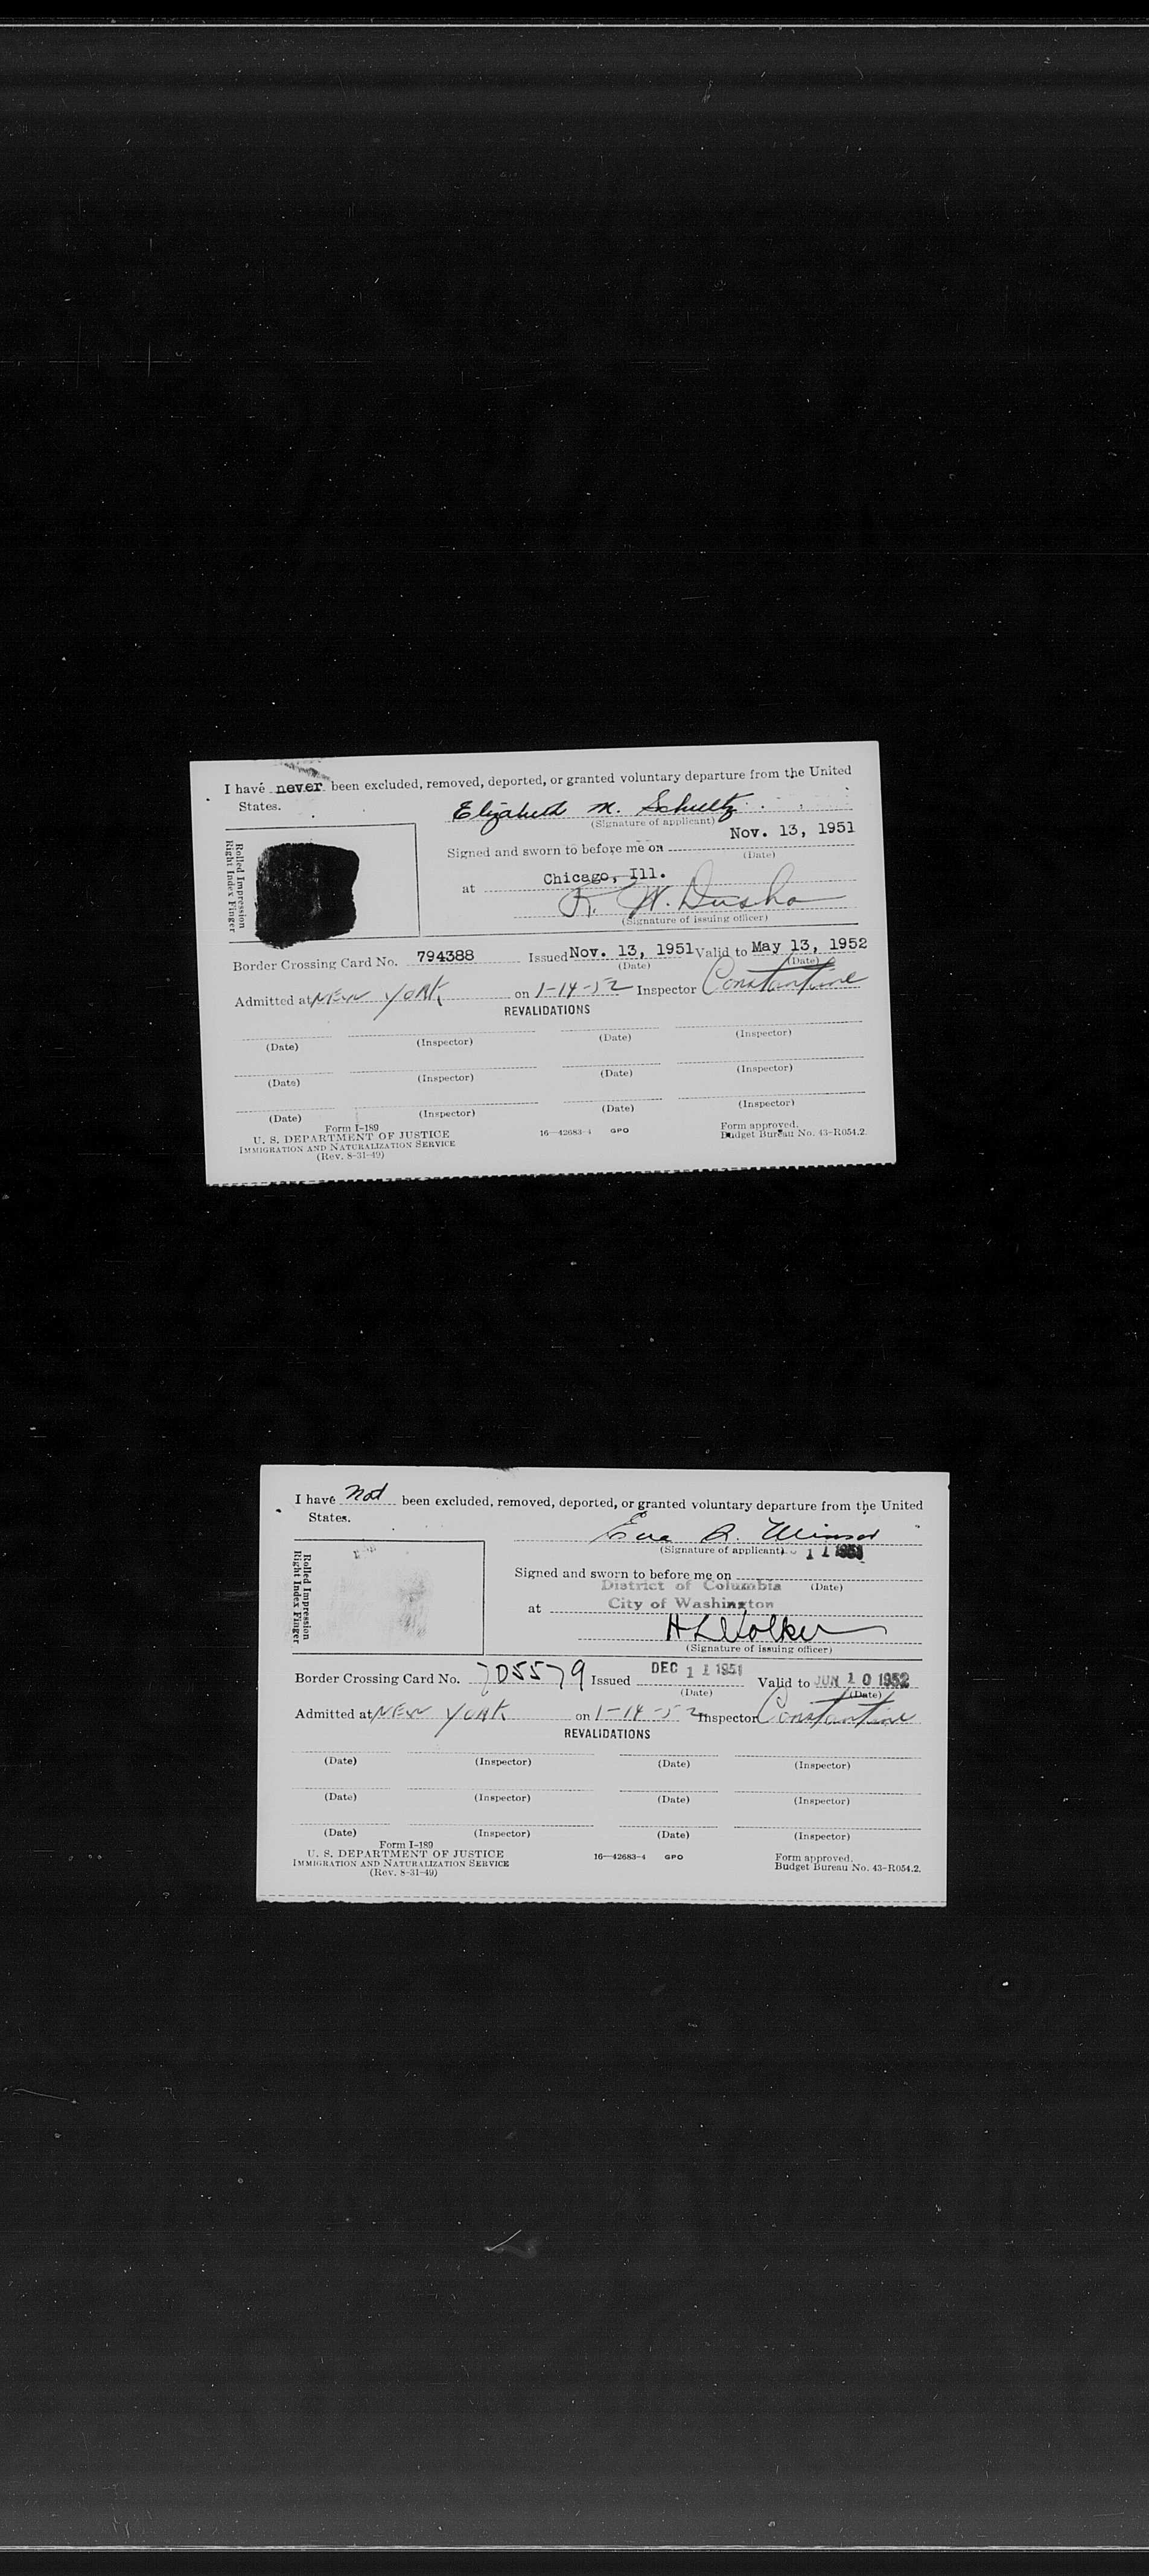 I have never been excluded, removed, deported, or granted voluntary departure from the United
States.
Elizabeth M. Schultz
(Signature of applicant)
Nov. 13, 1951
Signed and sworn to before me on
(Date)
Rolled Impression
Right Index Finger
at Chicago, Ill.
R. W. Dusha
(Signature of issuing officer)
Border Crossing Card No. 794388 Issued Nov. 13, 1951 Valid to May 13, 1952
(Date) (Date)
Admitted at NEW YORK on 1-14-52 Inspector Constantine
REVALIDATIONS
(Date) (Inspector) (Date) (Inspector)
(Date) (Inspector) (Date) (Inspector)
(Date) (Inspector) (Date) (Inspector)
Form I-189
U. S. DEPARTMENT OF JUSTICE
IMMIGRATION AND NATURALIZATION SERVICE
(Rev. 8-31-49)
16—42683-4 GPO
Form approved.
Budget Bureau No. 43-R054.2.
I have Not been excluded, removed, deported, or granted voluntary departure from the United
States.
Eva R.
(Signature of applicant)
11 1951
Signed and sworn to before me on
(Date)
Rolled Impression
Right Index Finger
District of Columbia
at City of Washington
(Signature of issuing officer)
Border Crossing Card No. 705579 Issued DEC 11 1951 Valid to JUN 10 1952
(Date) (Date)
Admitted at NEW YORK on 1-14-52 Inspector Constantine
REVALIDATIONS
(Date) (Inspector) (Date) (Inspector)
(Date) (Inspector) (Date) (Inspector)
(Date) (Inspector) (Date) (Inspector)
Form I-189
U. S. DEPARTMENT OF JUSTICE
IMMIGRATION AND NATURALIZATION SERVICE
(Rev. 8-31-49)
16—42683-4 GPO
Form approved.
Budget Bureau No. 43-R054.2.